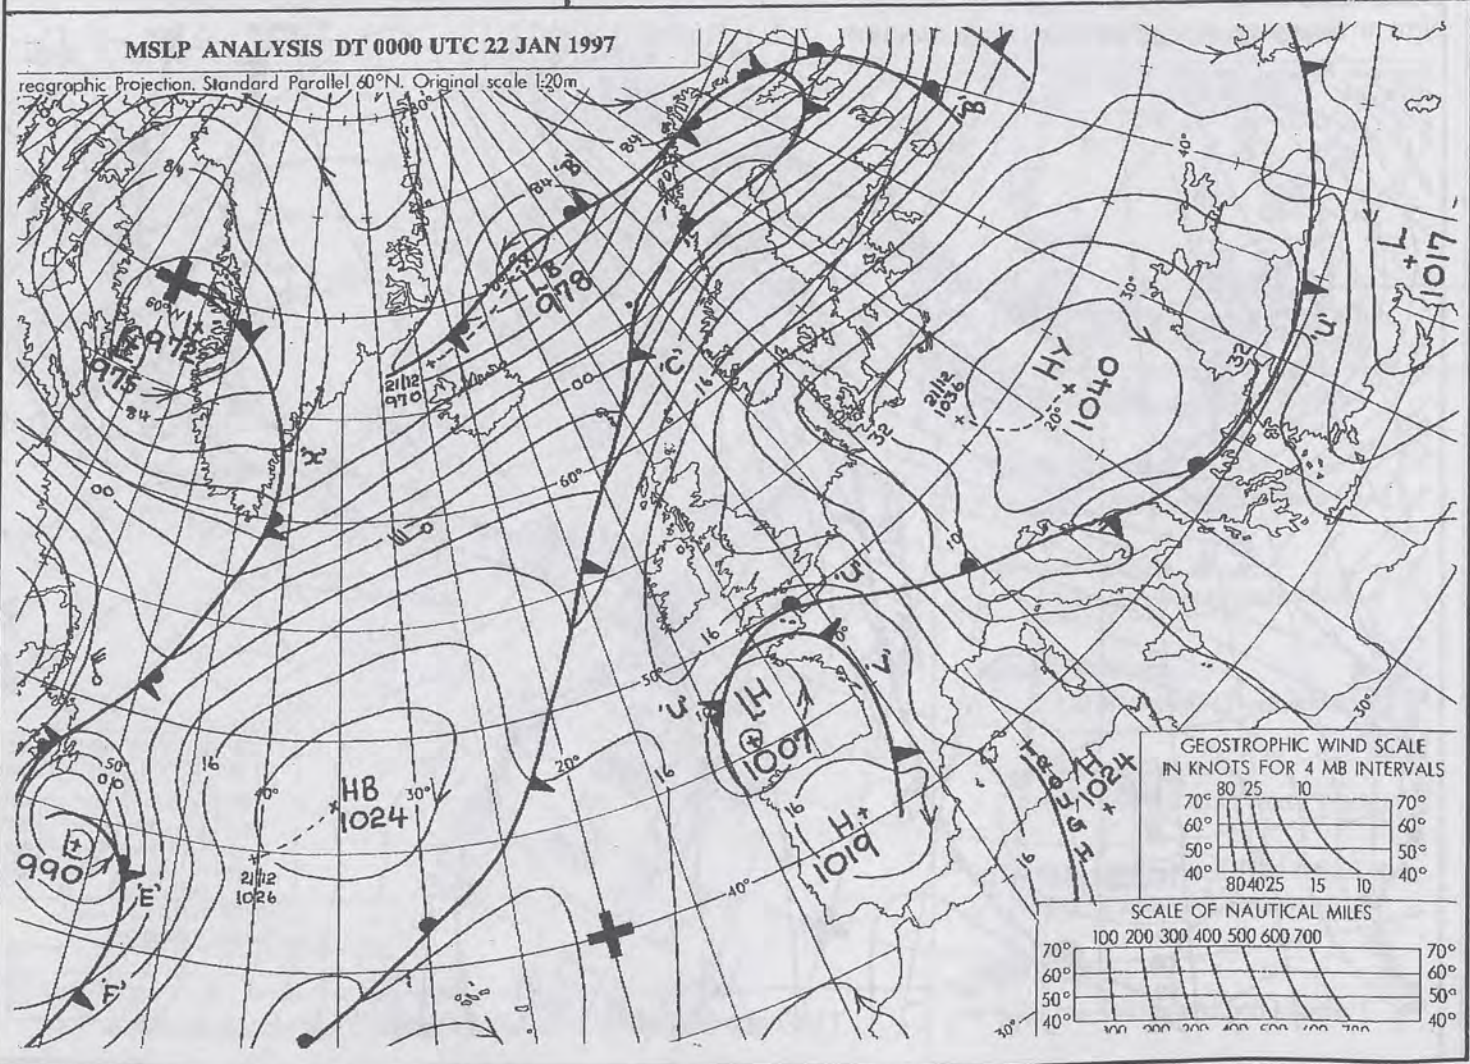 MSLP ANALYSIS DT 0000 UTC 22 JAN 1997
reographic Projection. Standard Parallel 60°N. Original scale 1:20m
80°
84
'B'
84
84 'B'
40°
L
1017
60°N
L
972
975
84
LB
978
21/12
970
'C'
16
00
21/12
1036
HY
1040
20°
30°
32
32
'U'
'X'
00
60°
10
'U'
16
0°
50°
'L'
'U'
LH
1007
16
50°
16
40°
HB
1024
30°
21/12
1026
20°
16
990
'E'
'F'
16
H
1019
40°
TROUGH
H
1024
16
30°
30°
GEOSTROPHIC WIND SCALE
IN KNOTS FOR 4 MB INTERVALS
80 25 10
70° 70°
60° 60°
50° 50°
40° 40°
80 40 25 15 10
SCALE OF NAUTICAL MILES
100 200 300 400 500 600 700
70° 70°
60° 60°
50° 50°
40° 40°
100 200 300 400 500 600 700